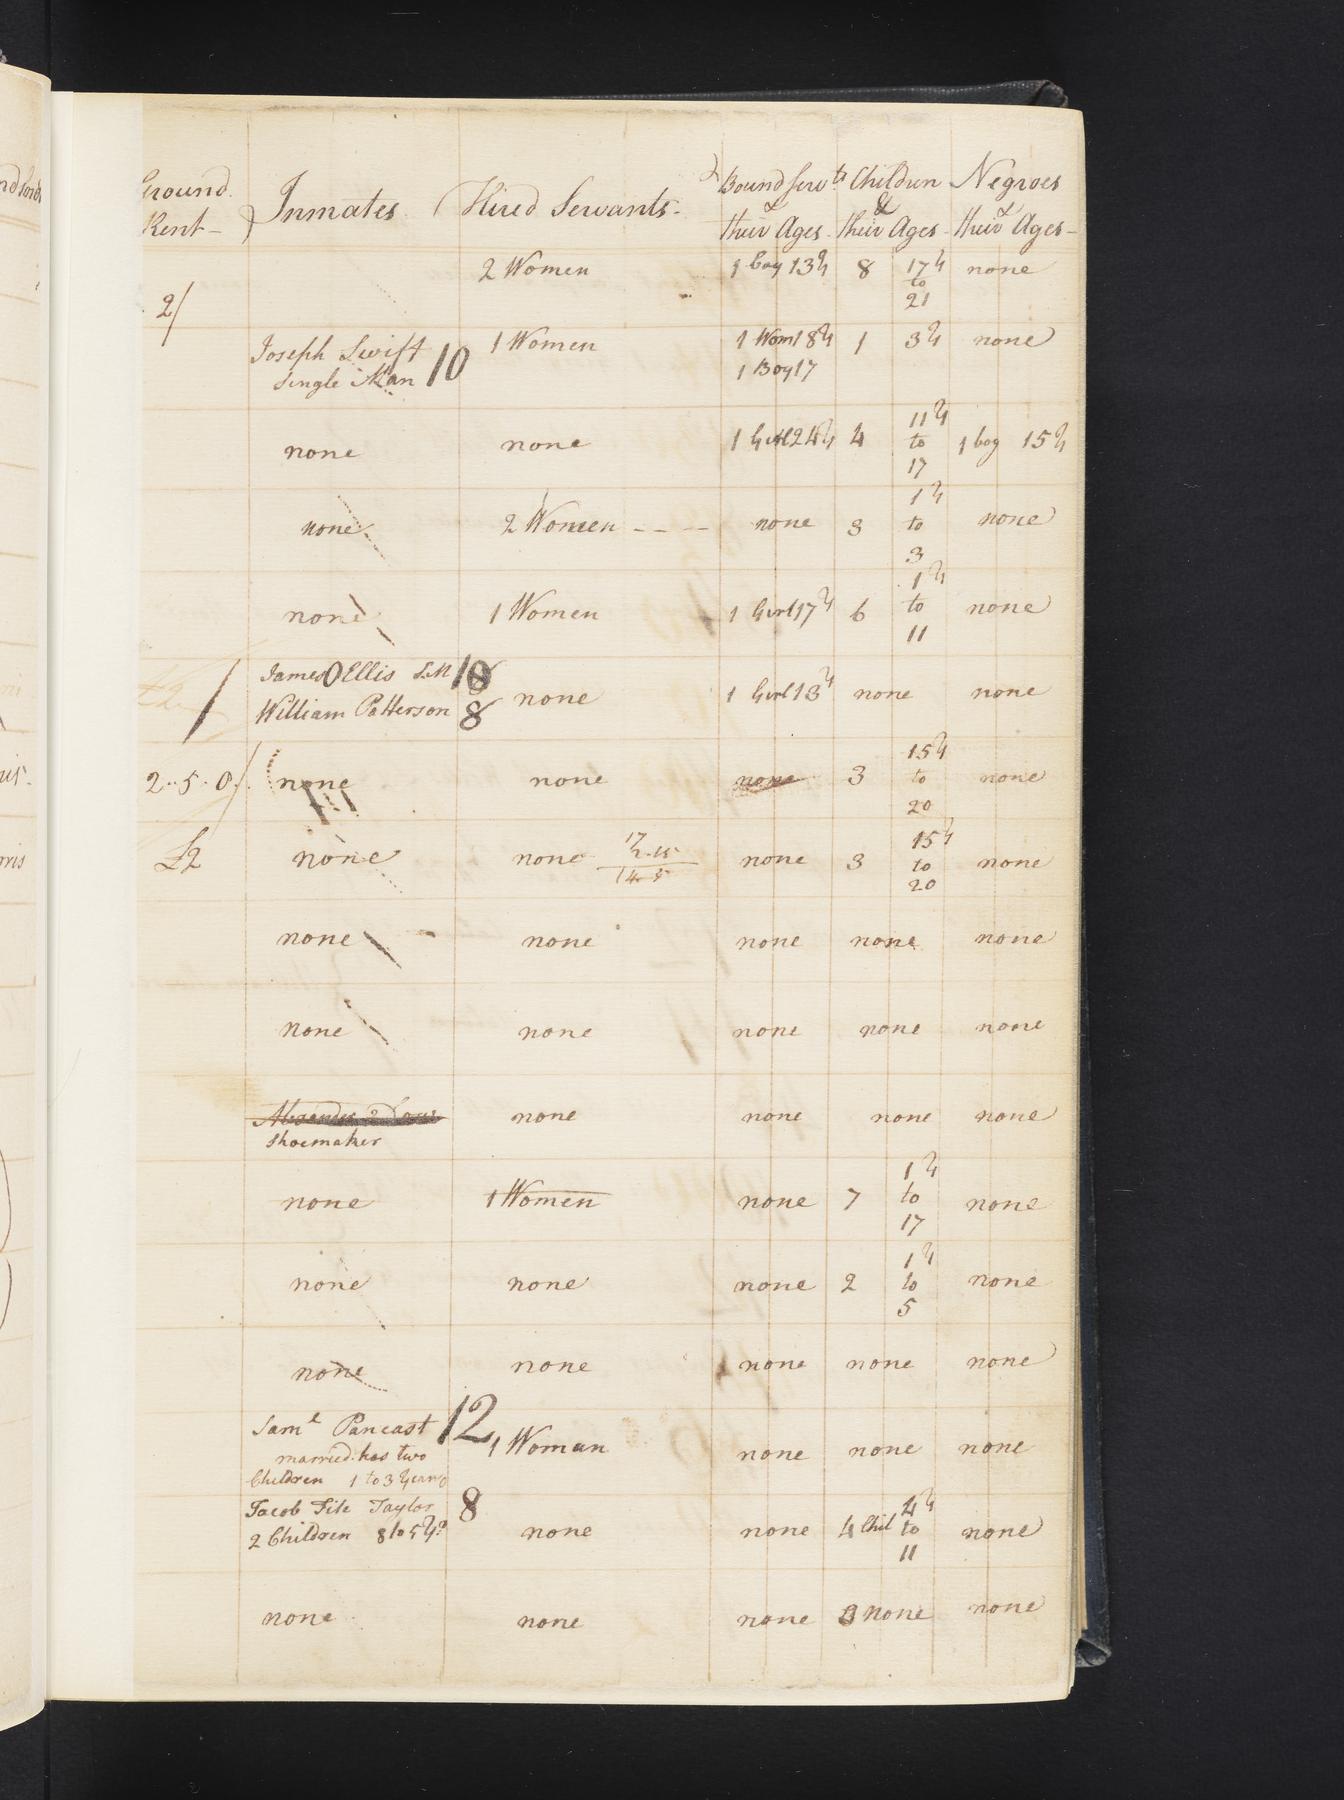 Ground Rent- Inmates Hired Servants- Bound Servts & their Ages- Children & their Ages- Negroes & their Ages-
2 Women 1 boy 13 y 8 17 y to 21 none
2/
Joseph Swift 1 Women 1 Wom 18 y 1 3 y none
Single Man 10 1 Boy 17
none none 1 Girl 24 y 4 11 y to 17 1 boy 15 y
none 2 Women - - - none 3 1 y to 3 none
none 1 Women 1 Girl 17 y 6 1 y to 11 none
James Ellis S.M 10
William Patterson 8 none 1 Girl 13 y none none
2..5.0/ none none none 3 15 y to 20 none
£2 none none none 3 15 y to 20 none
none none none none none
none none none none none
none none none none
Shoemaker
none 1 Women none 7 1 y to 17 none
none none none 2 1 y to 5 none
none none none none none
Saml Pancast 12 1 Woman none none none
married has two
Children 1 to 3 Years
Jacob File Taylor 8
2 Children 8 to 5 ys none none 4 Chil 4 y to 11 none
none none none none none